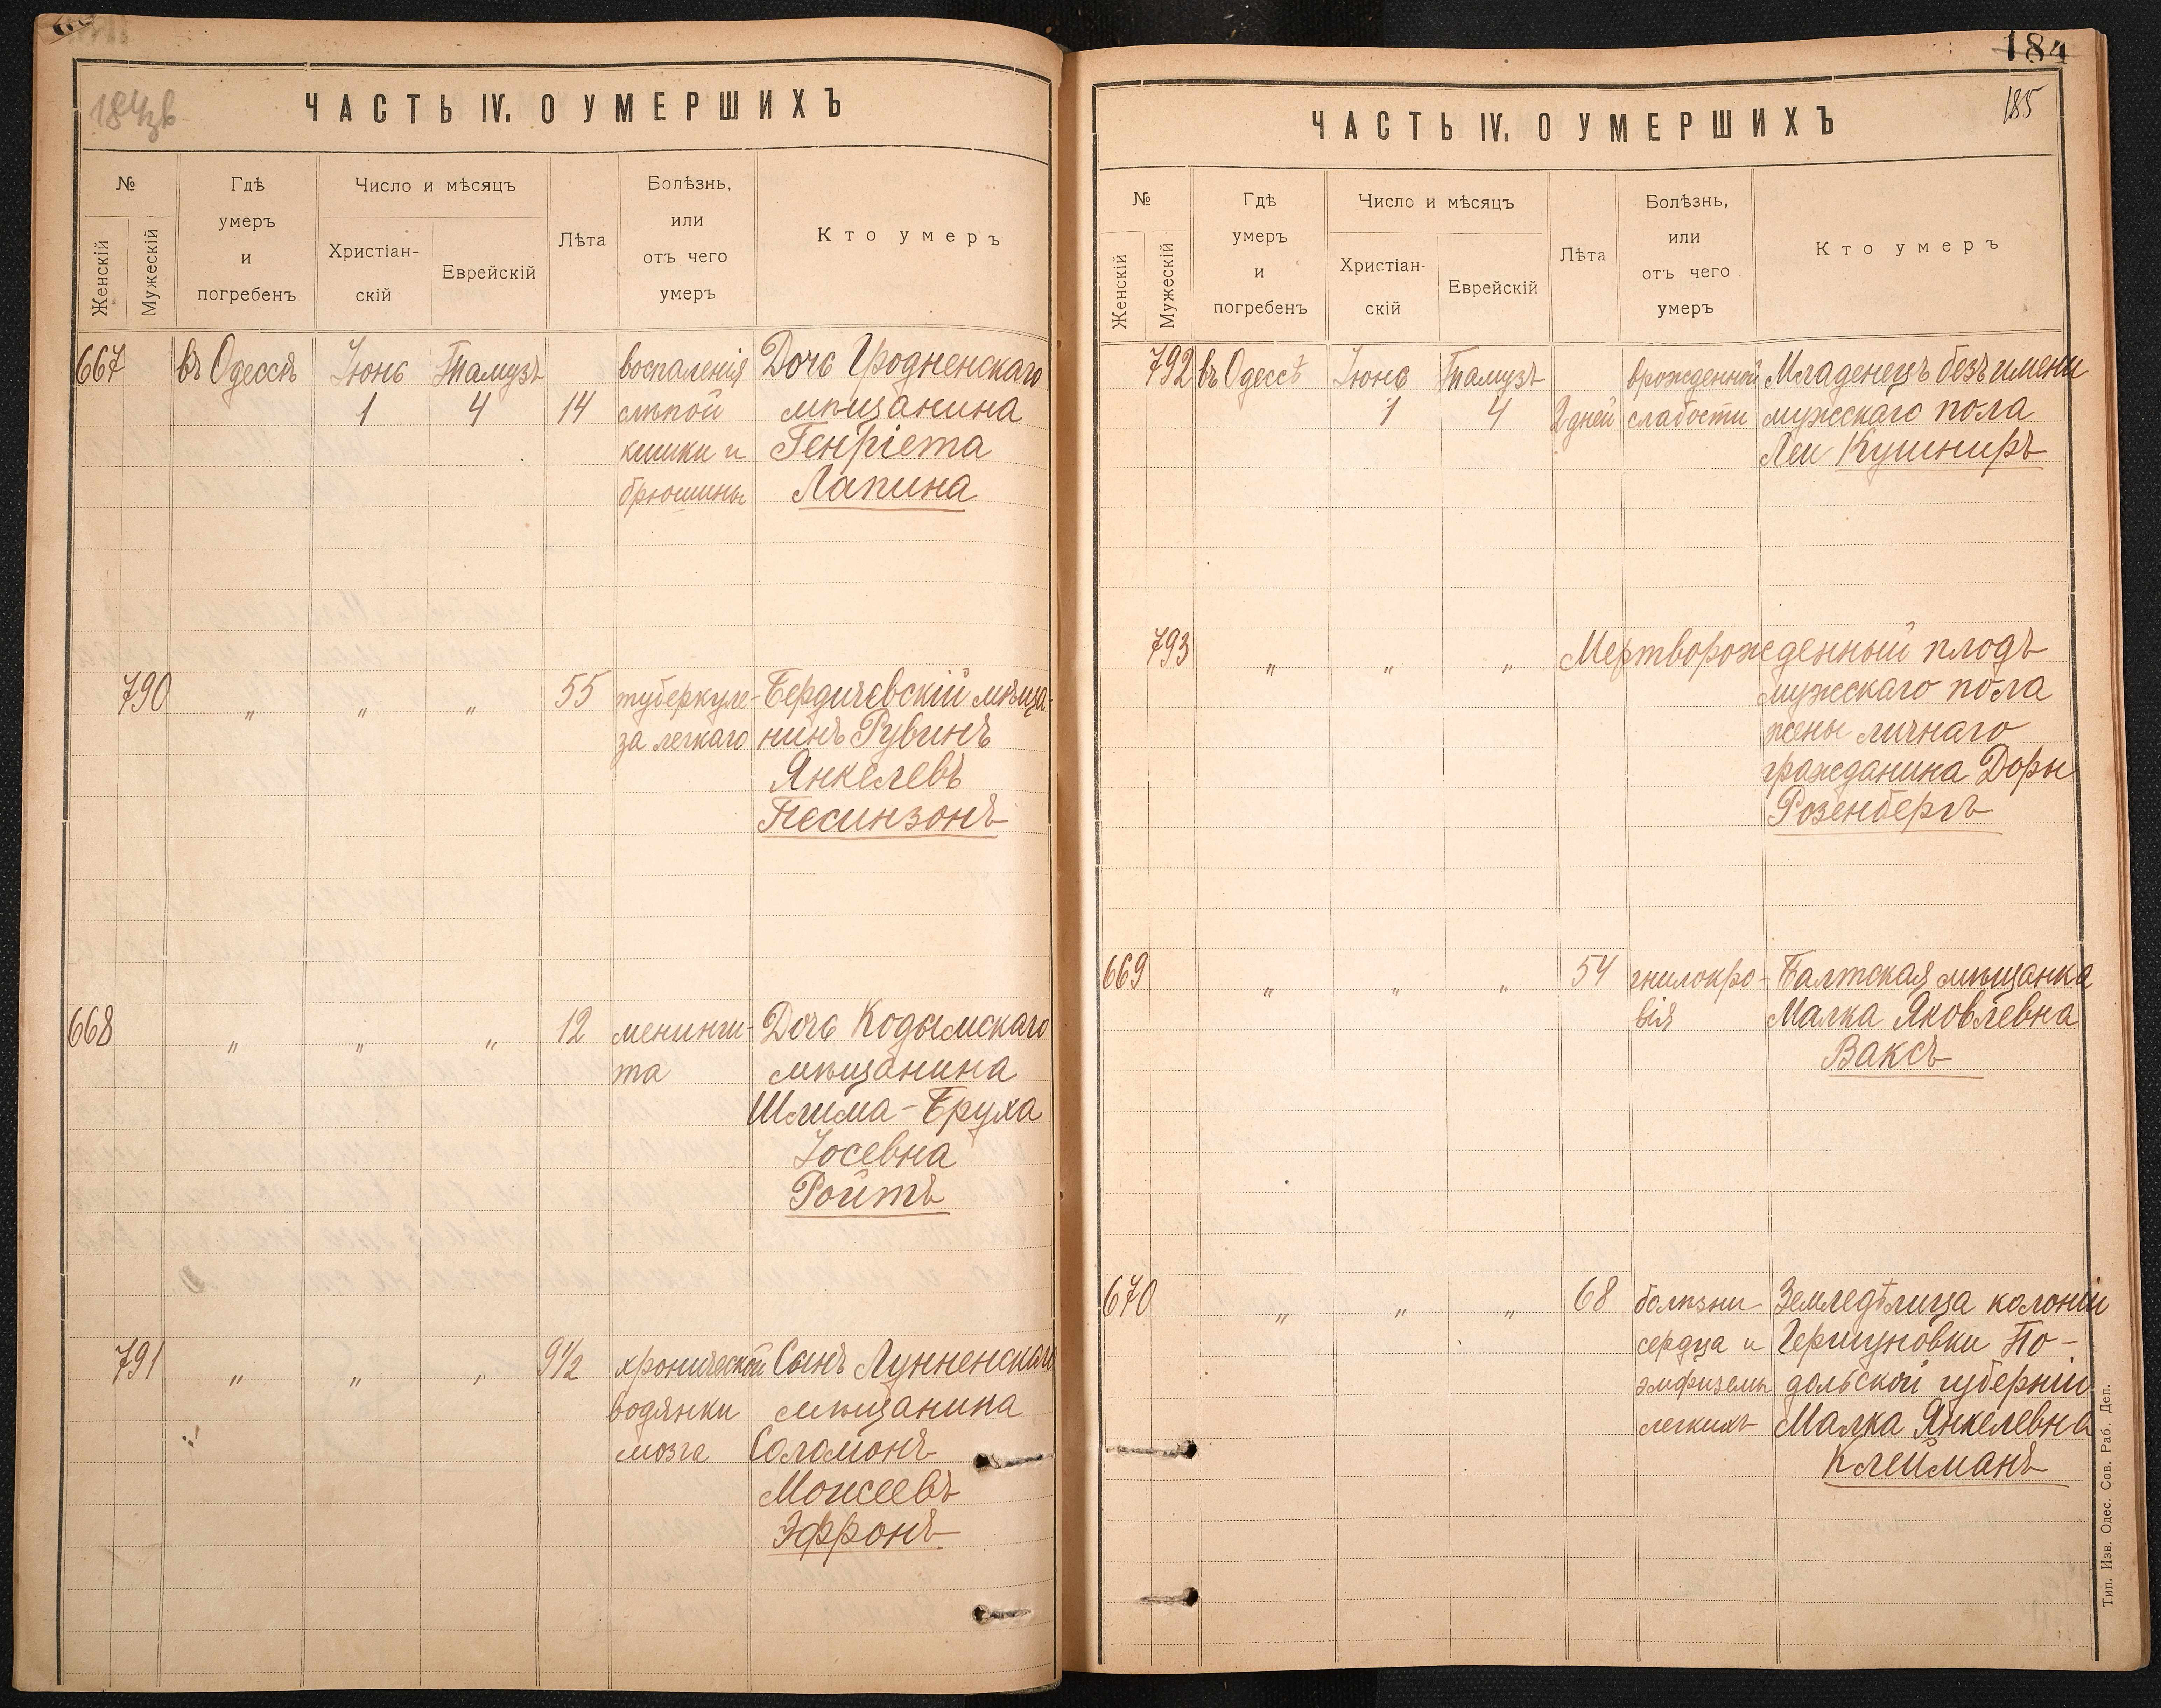 184зв
ЧАСТЬ IV. О УМЕРШИХЪ
№
Женскій
Мужескій
Гдѣ
умеръ
и
погребенъ
Число и мѣсяцъ
Христіан-
скій
Еврейскій
Лѣта
Болѣзнь,
или
отъ чего
умеръ
Кто умеръ
667 въ Одессѣ Іюнь Тамузъ воспаленія Дочь Гродненскаго
1 4 14 слѣпой мѣщанина
кишки и Генріета
брюшины Лапина
790 „ „ „ 55 туберкуле- Бердичевскій мѣща-
за легкаго нинъ Рувинъ
Янкелевъ
Песинзонъ
668 „ „ „ 12 менинги- Дочь Кодымскаго
та мѣщанина
Шлима-Бруха
Іосевна
Ройтъ
791 „ „ „ 9 1/2 хронической Сынъ Лунненскаго
водянки мѣщанина
мозга Соломонъ
Моисеевъ
Эфронъ
184
185
ЧАСТЬ IV. О УМЕРШИХЪ
№
Женскій
Мужескій
Гдѣ
умеръ
и
погребенъ
Число и мѣсяцъ
Христіан-
скій
Еврейскій
Лѣта
Болѣзнь,
или
отъ чего
умеръ
Кто умеръ
792 въ Одессѣ Іюнь Тамузъ врожденной Младенецъ безъ имени
1 4 2 дней слабости мужескаго пола
Леи Кушниръ
793 „ „ „ Мертворожденный плодъ
мужескаго пола
жены личнаго
гражданина Доры
Розенбергъ
669 „ „ „ 54 гнилокро- Балтская мѣщанка
вія Малка Яковлевна
Ваксъ
670 „ „ „ 68 болѣзни Земледѣлица колоніи
сердца и Гершуновки По-
эмфиземы дольской губерніи
легкихъ Малка Янкелевна
Клейманъ
Тип. Изв. Одес. Сов. Раб. Деп.